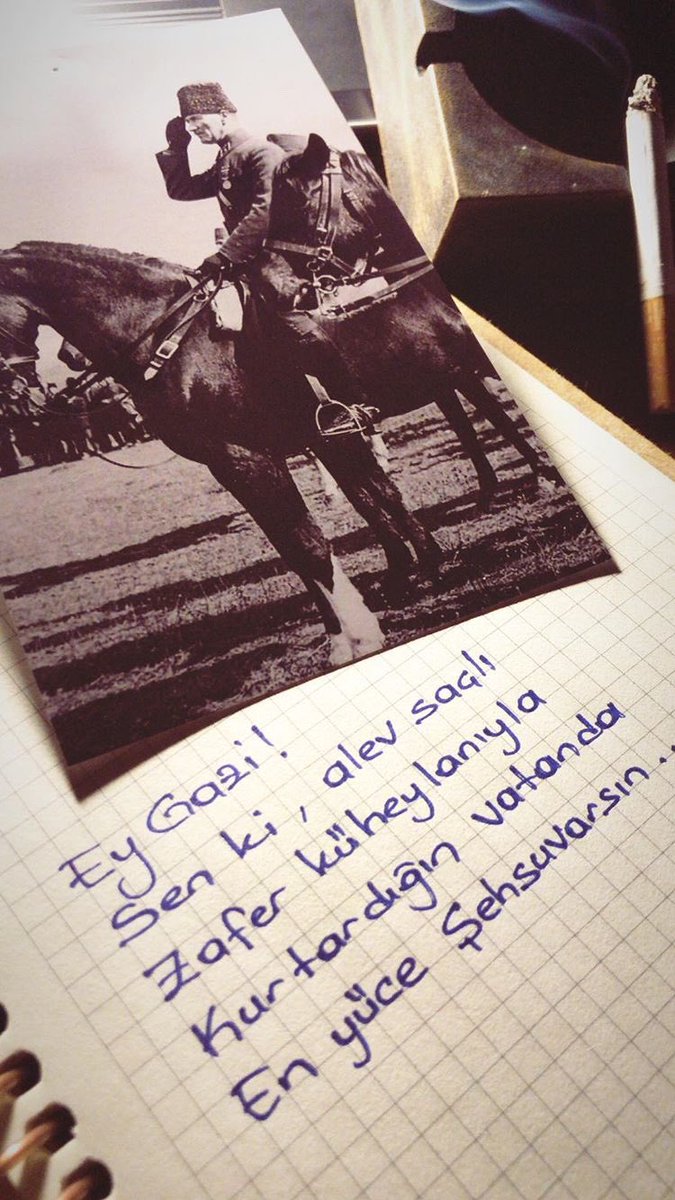 Ey Gazi!
Sen ki, alev saçlı
Zafer küheylanıyla
Kurtardığın vatanda
En yüce Şehsuvarsın...